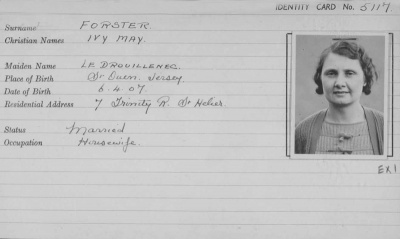 IDENTITY CARD No. 5117.
Surname FORSTER
Christian Names IVY MAY.
Maiden Name LE DROUILLENEC.
Place of Birth St Ouen. Jersey.
Date of Birth 6.4.07.
Residential Address 7 Trinity R. St Helier.
Status Married
Occupation Housewife.
EX1